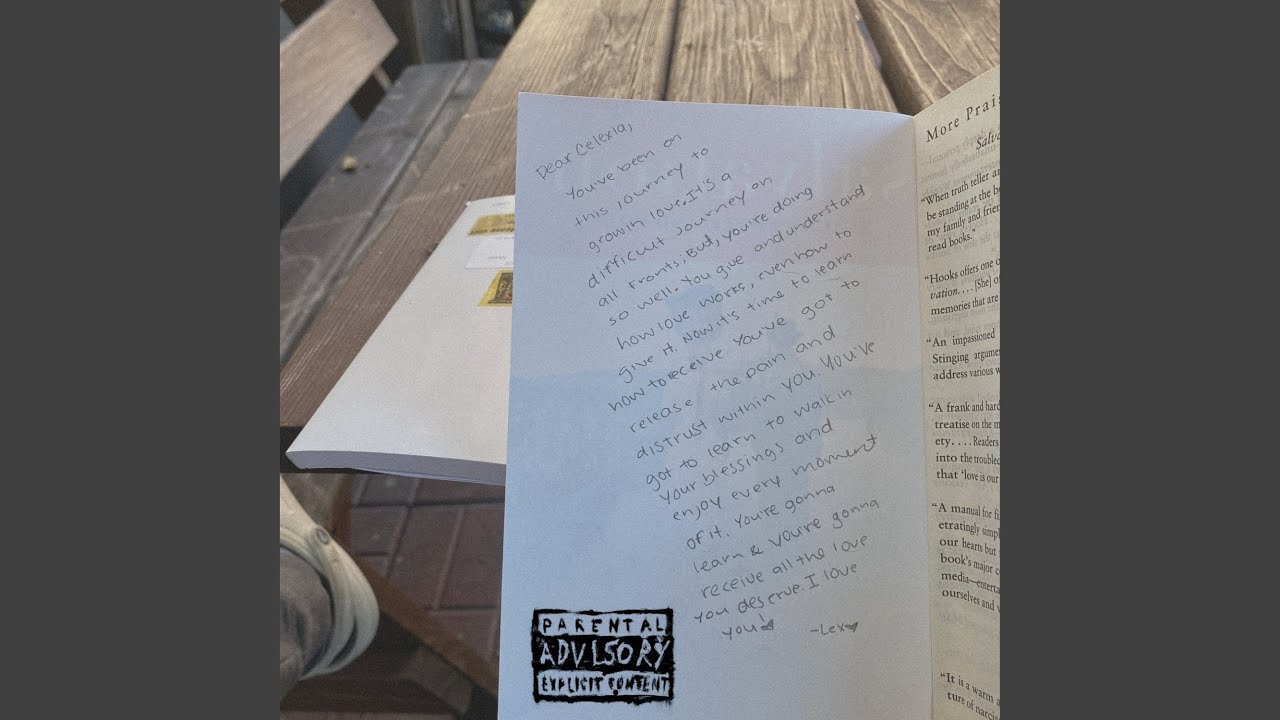 Dear Celexia,
You've been on
this journey to
growin love. It's a
difficult journey on
all fronts. But, you're doing
so well. You give and understand
how love works, even how to
give it. Now it's time to learn
how to receive. You've got to
release the pain and
distrust within you. You've
got to learn to walk in
your blessings and
enjoy every moment
of it. You're gonna
learn & you're gonna
receive all the love
you deserve. I love
you!
-Lex
PARENTAL
ADVISORY
EXPLICIT CONTENT
More Prais
Salv
"When truth teller a
be standing at the b
my family and frien
read books."
"Hooks offers one o
vation. . . . [She] o
memories that are
"An impassioned
Stinging argume
address various w
"A frank and hard
treatise on the m
ety. . . . Readers
into the troubled
that 'love is our
"A manual for fi
etratingly simpl
our hearts but
book's major c
media—enterta
ourselves and
"It is a warm a
ture of narcis